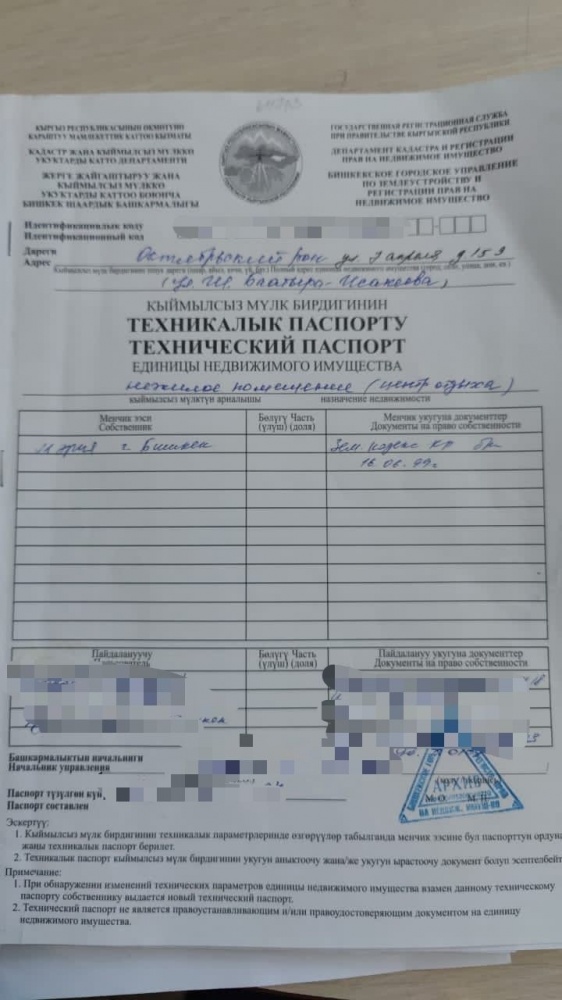 КЫРГЫЗ РЕСПУБЛИКАСЫНЫН ӨКМӨТҮНҮН
КАРАШТУУ МАМЛЕКЕТТИК КАТТОО КЫЗМАТЫ
КАДАСТР ЖАНА КЫЙМЫЛСЫЗ МҮЛККӨ
УКУКТАРДЫ КАТТОО ДЕПАРТАМЕНТИ
ЖЕРГЕ ЖАЙГАШТЫРУУ ЖАНА
КЫЙМЫЛСЫЗ МҮЛККӨ
УКУКТАРДЫ КАТТОО БОЮНЧА
БИШКЕК ШААРДЫК БАШКАРМАЛЫГЫ
ГОСУДАРСТВЕННАЯ РЕГИСТРАЦИОННАЯ СЛУЖБА
ПРИ ПРАВИТЕЛЬСТВЕ КЫРГЫЗСКОЙ РЕСПУБЛИКИ
ДЕПАРТАМЕНТ КАДАСТРА И РЕГИСТРАЦИИ
ПРАВ НА НЕДВИЖИМОЕ ИМУЩЕСТВО
БИШКЕКСКОЕ ГОРОДСКОЕ УПРАВЛЕНИЕ
ПО ЗЕМЛЕУСТРОЙСТВУ И
РЕГИСТРАЦИИ ПРАВ НА
НЕДВИЖИМОЕ ИМУЩЕСТВО
Идентификациялык коду
Идентификационный код
Дареги
Адрес
Октябрьский р-он ул. 7 апреля, д 153
(ул. Ш. Баатыра-Исакеева)
КЫЙМЫЛСЫЗ МҮЛК БИРДИГИНИН
ТЕХНИКАЛЫК ПАСПОРТУ
ТЕХНИЧЕСКИЙ ПАСПОРТ
ЕДИНИЦЫ НЕДВИЖИМОГО ИМУЩЕСТВА
нежилое помещение (центр отдыха)
кыймылсыз мүлктүн арналышы назначение недвижимости
Менчик ээси Бөлүгү Часть Менчик укугуна документтер
Собственник (үлүш) (доля) Документы на право собственности
мэрия г. Бишкек Зем кодекс КР
Пайдалануучу Бөлүгү Часть Пайдалануу укугуна документтер
(үлүш) (доля) Документы на право собственности
Башкармалыктын начальниги
Начальник управления
Паспорт түзүлгөн күй,
Паспорт составлен
М. О. М. П.
АРХИВ
Эскертүү:
1. Кыймылсыз мүлк бирдигинин техникалык параметрлеринде өзгөрүүлөр табылганда менчик ээсине бул паспорттун ордуна
жаңы техникалык паспорт берилет.
2. Техникалык паспорт кыймылсыз мүлк бирдигинин укугун аныктоочу жана/же укугун ырастоочу документ болуп эсептелбейт
Примечание:
1. При обнаружении изменений технических параметров единицы недвижимого имущества взамен данному техническому
паспорту собственнику выдается новый технический паспорт.
2. Технический паспорт не является правоустанавливающим и/или правоудостоверяющим документом на единицу
недвижимого имущества.